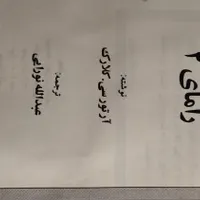 رامای ۲
نوشته:
آرتور سی. کلارک
ترجمه:
عبدالله نورایی